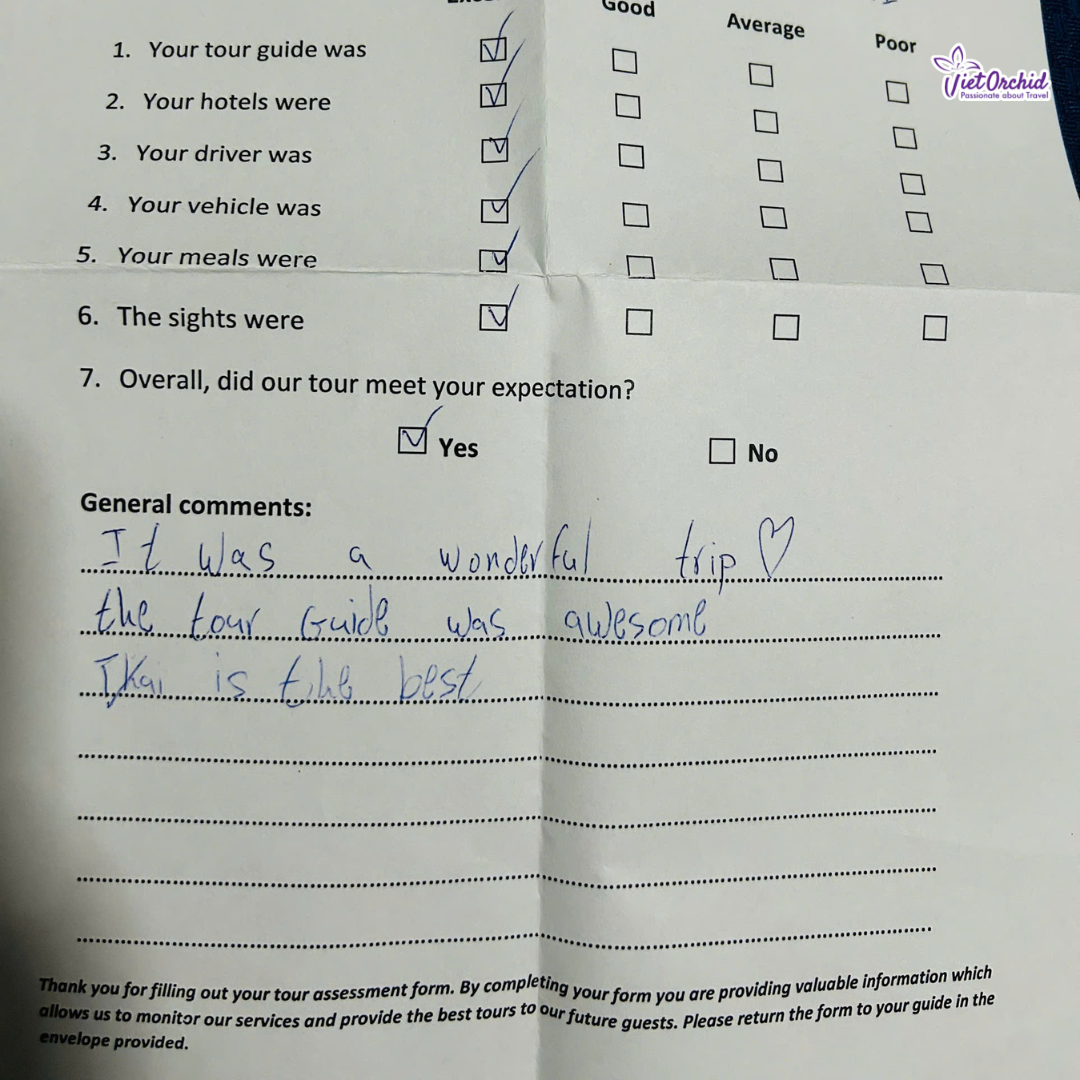 Good Average Poor
VietOrchid
Passionate about Travel
1. Your tour guide was
2. Your hotels were
3. Your driver was
4. Your vehicle was
5. Your meals were
6. The sights were
7. Overall, did our tour meet your expectation?
Yes No
General comments:
It was a wonderful trip ♡
the tour Guide was awesome
is the best
Thank you for filling out your tour assessment form. By completing your form you are providing valuable information which
allows us to monitor our services and provide the best tours to our future guests. Please return the form to your guide in the
envelope provided.